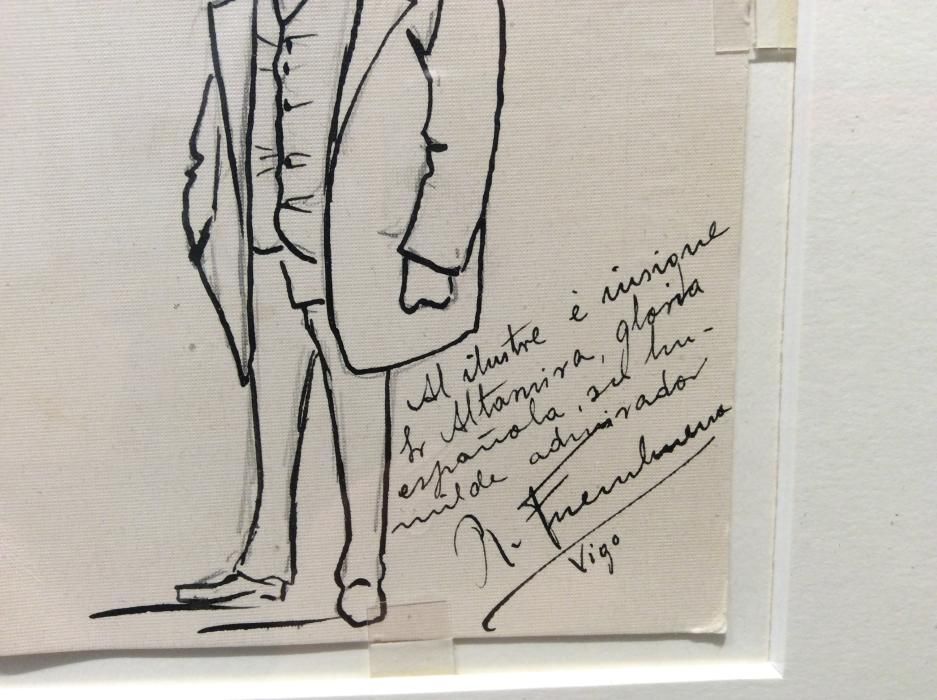 Al ilustre è insigne
Sr Altamira, gloria
española, su hu-
milde admirador
R.
Vigo